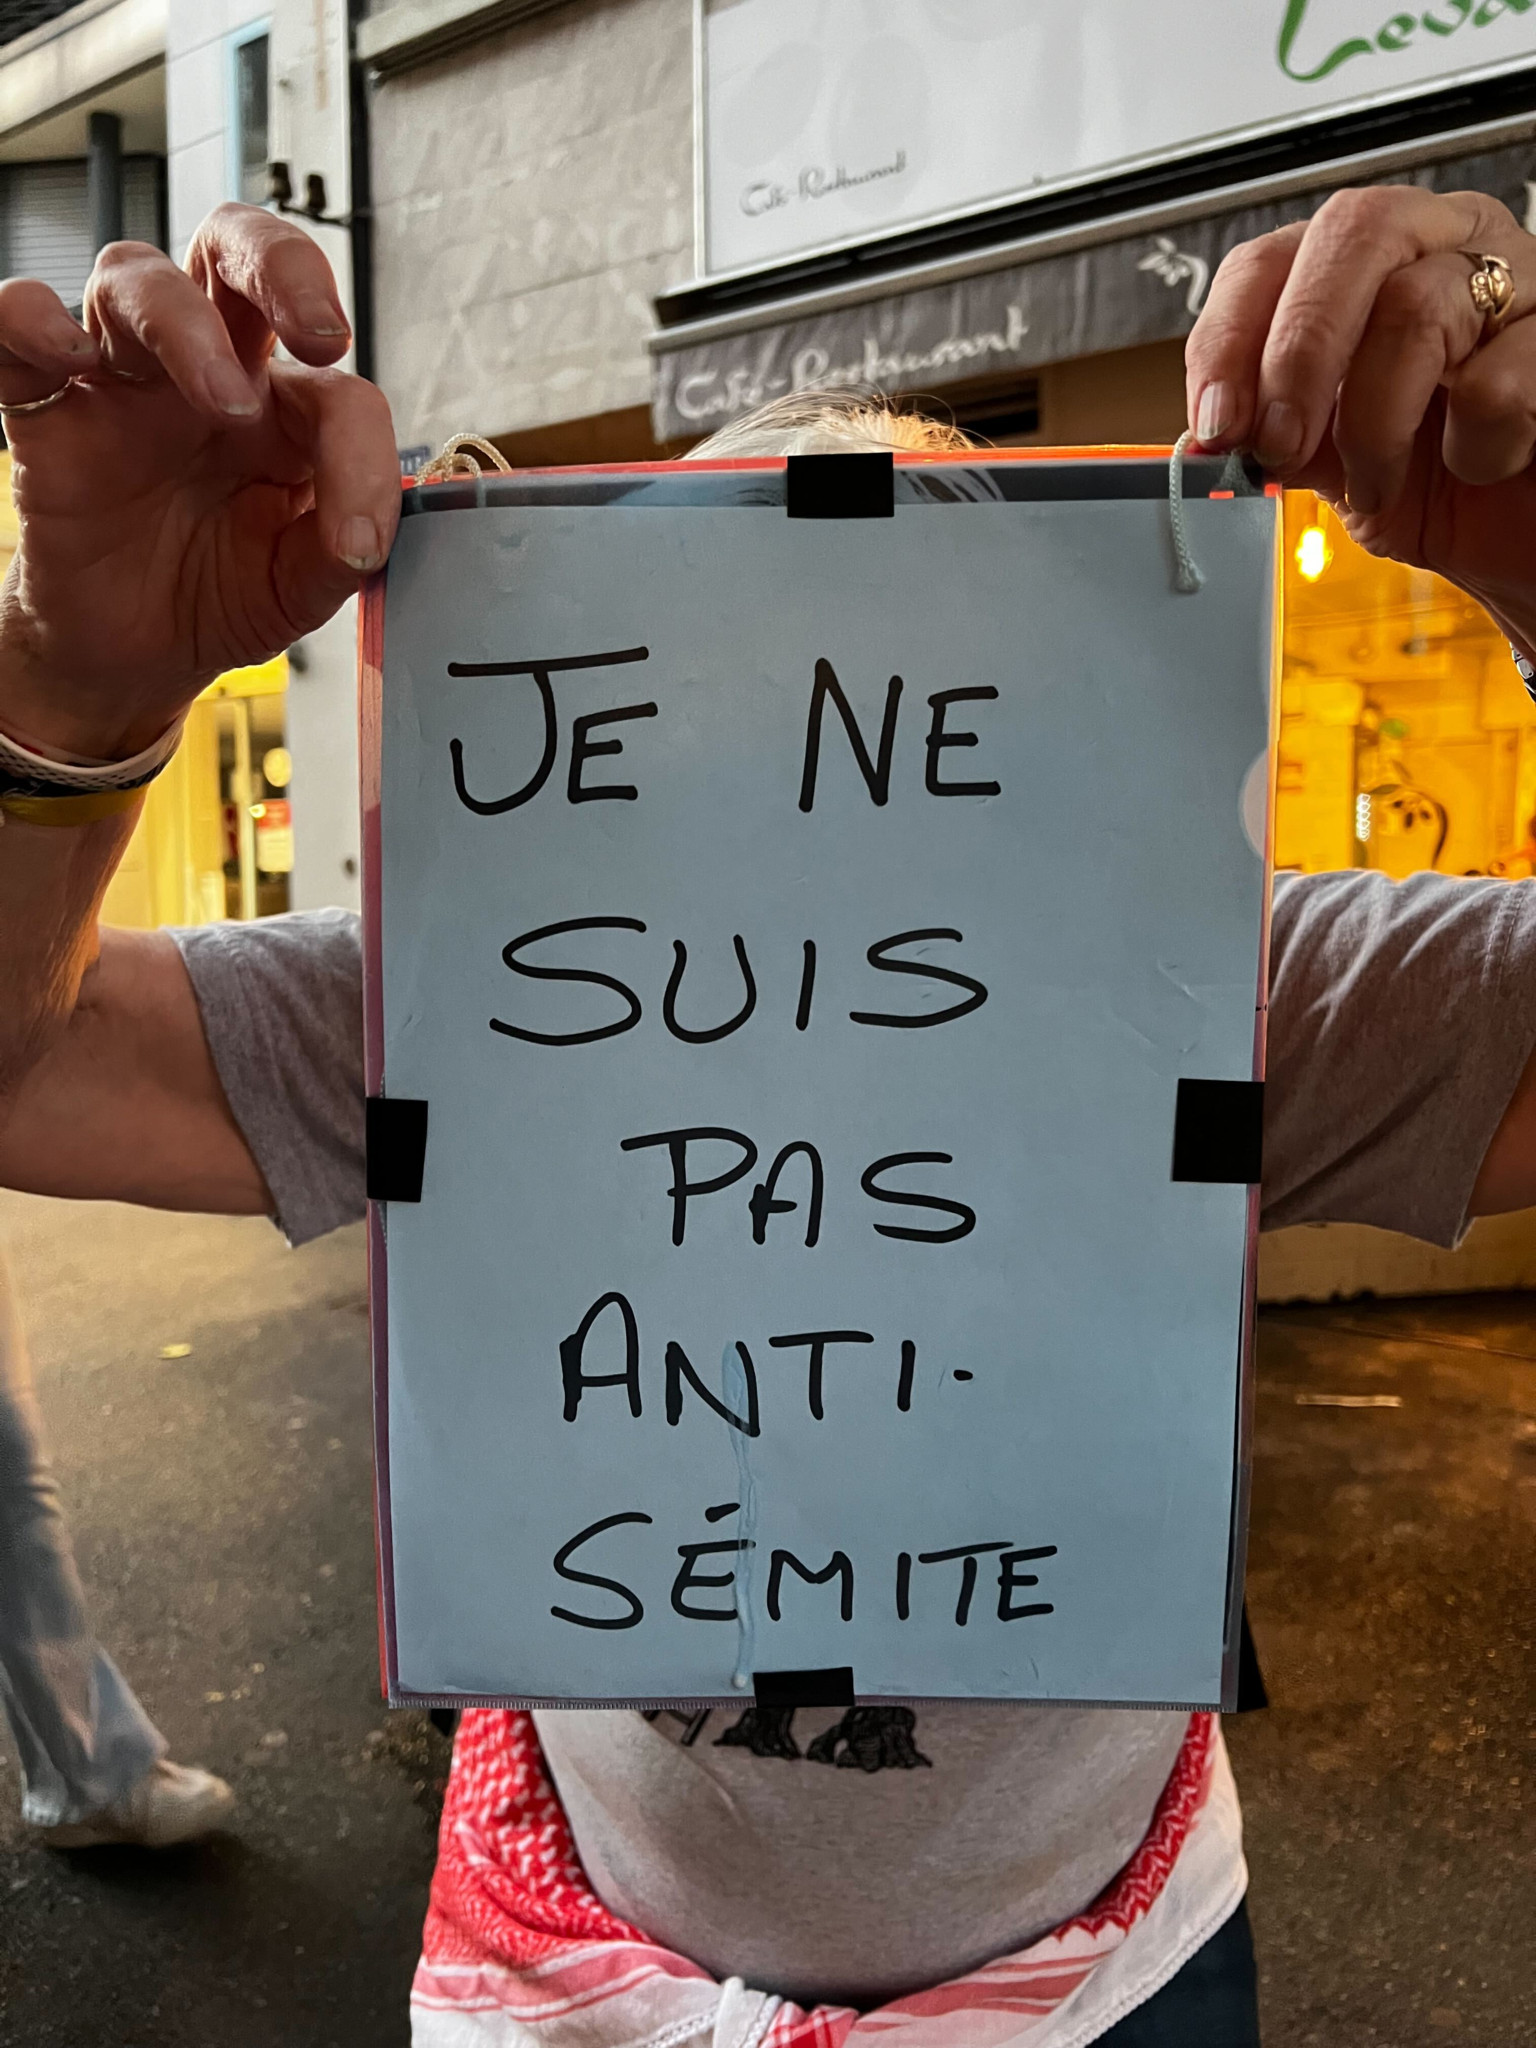 Café-Restaurant
Café-Restaurant
JE NE
SUIS
PAS
ANTI-
SÉMITE